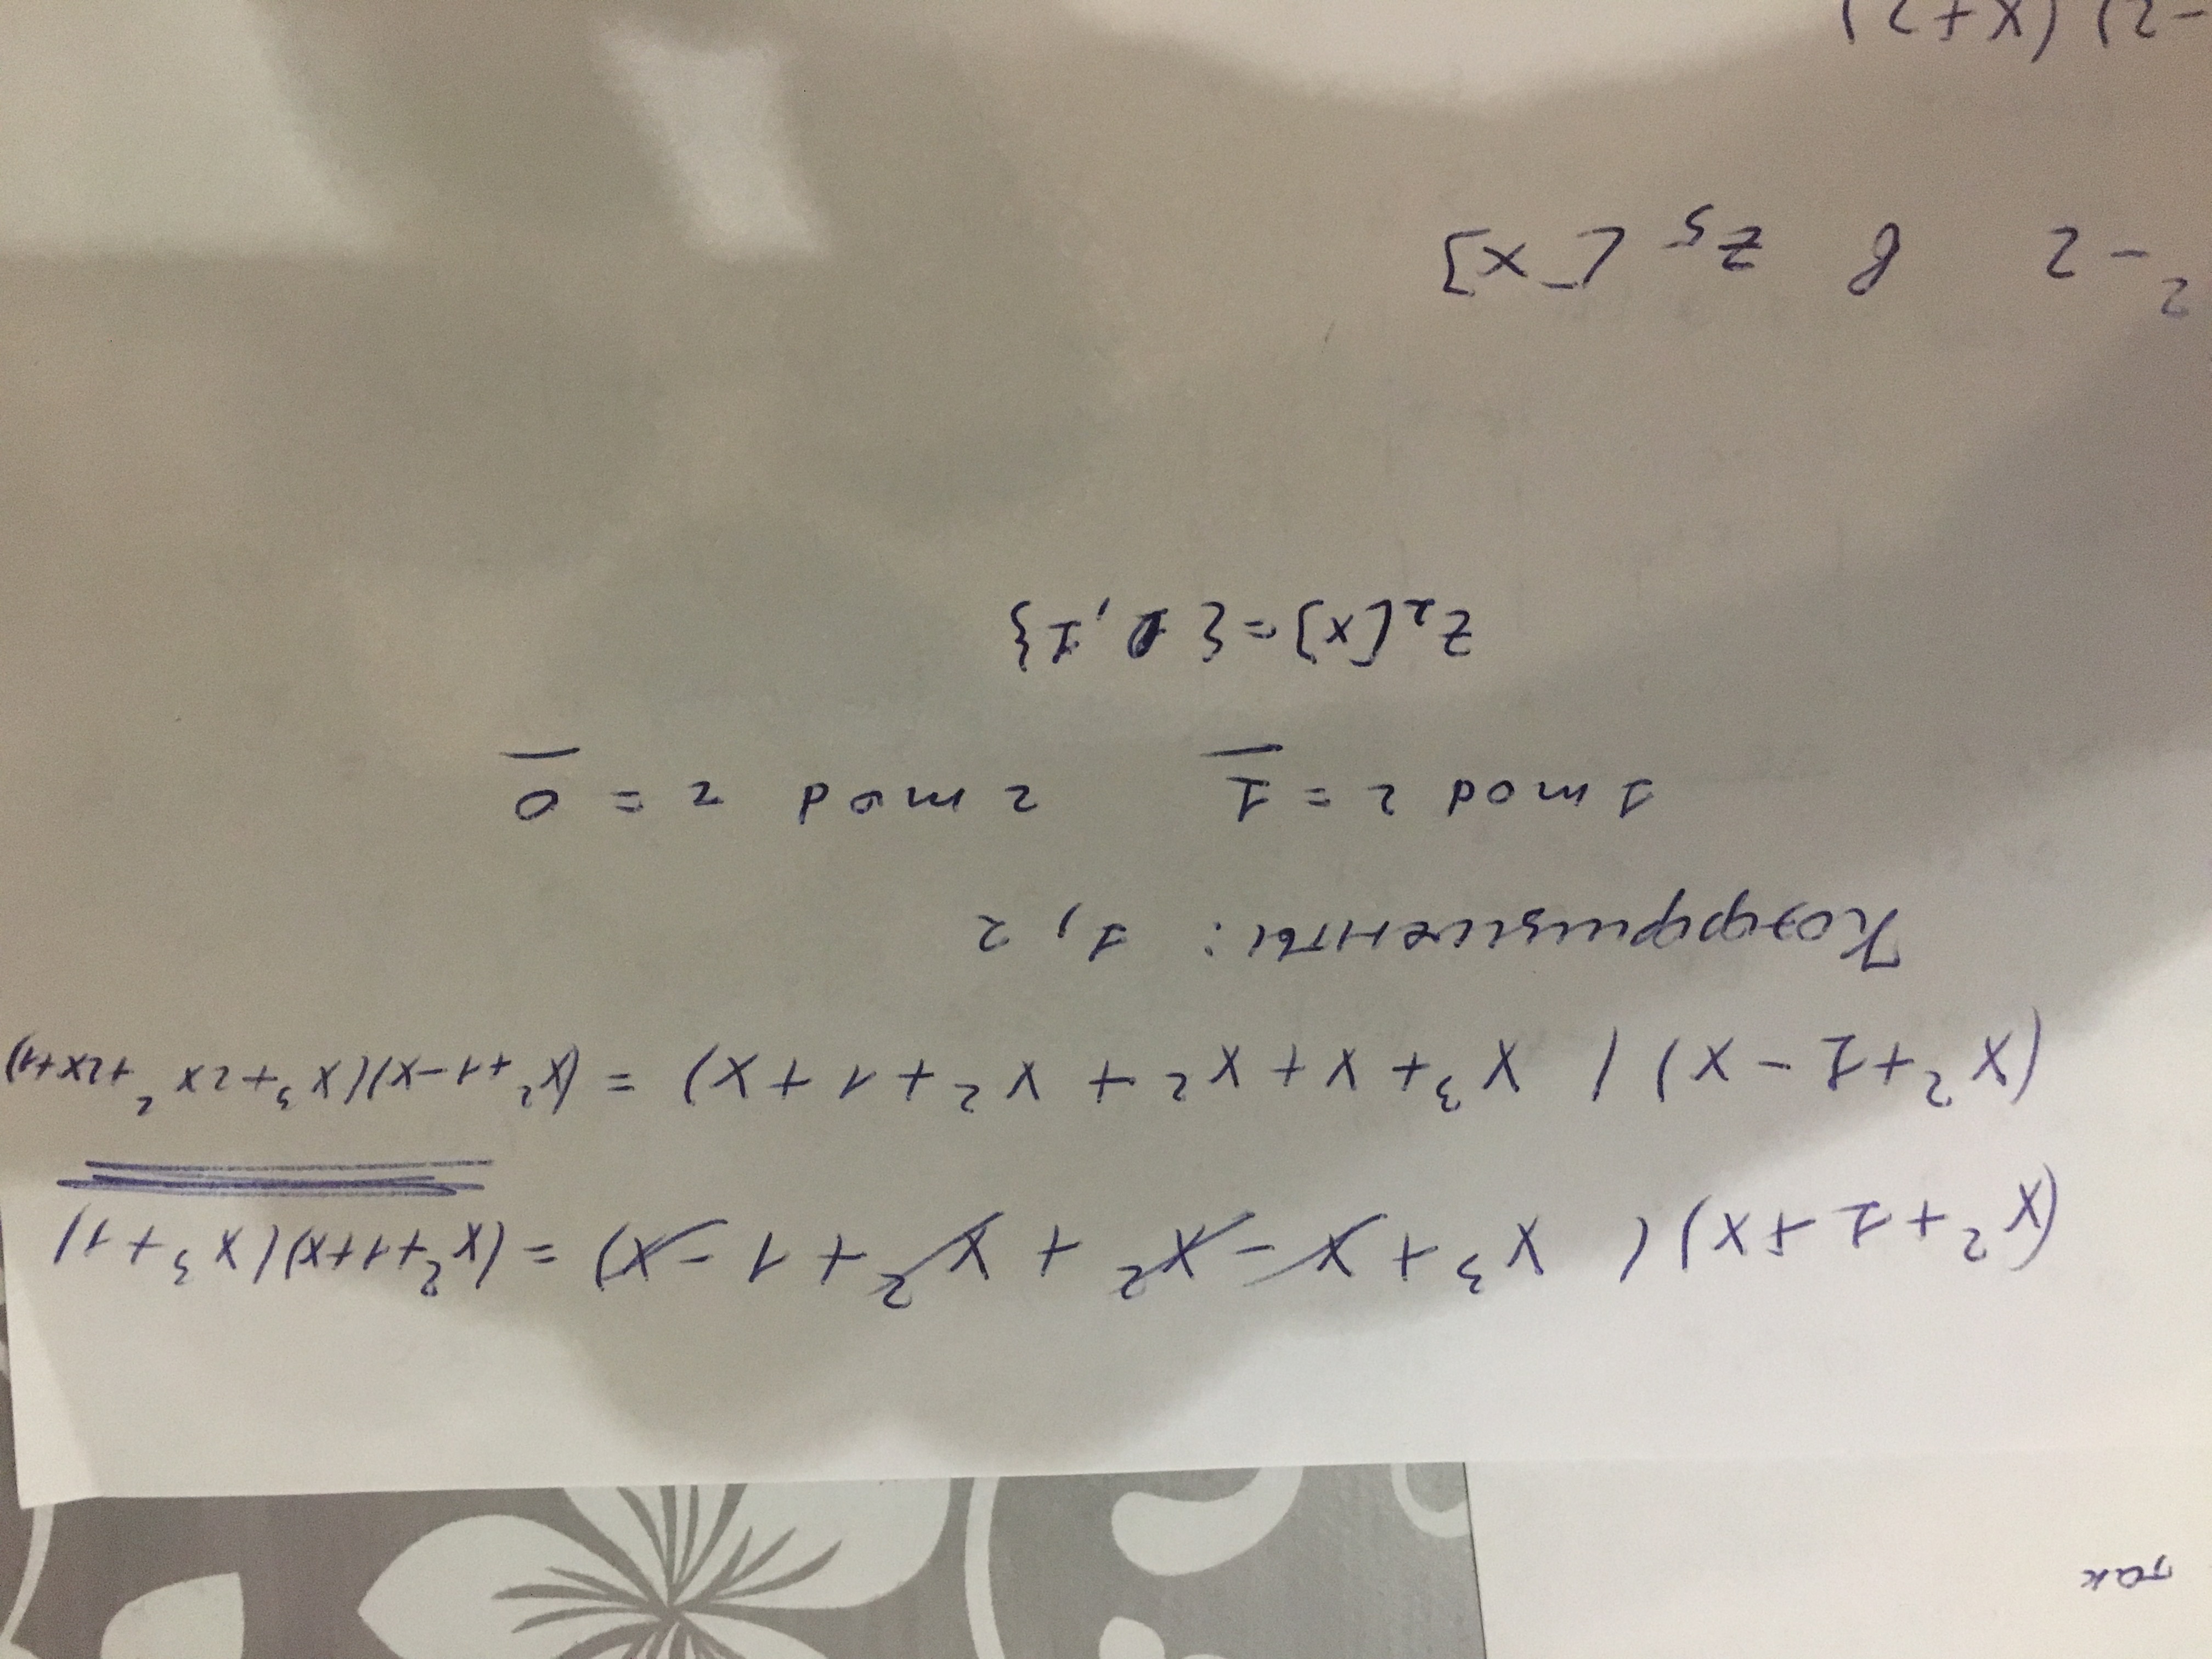 так
(x²+1+x)(x³+x-x²+x²+1-x)=(x²+1+x)(x³+1)
(x²+1-x)(x³+x+x²+x²+1+x)=(x²+1-x)(x³+2x²+2x+1)
Коэффициенты: 1, 2
1 mod 2 = 1 2 mod 2 = 0
Z₂[x]={0,1}
²-2 в Z₅[x]
-2)(x+2)